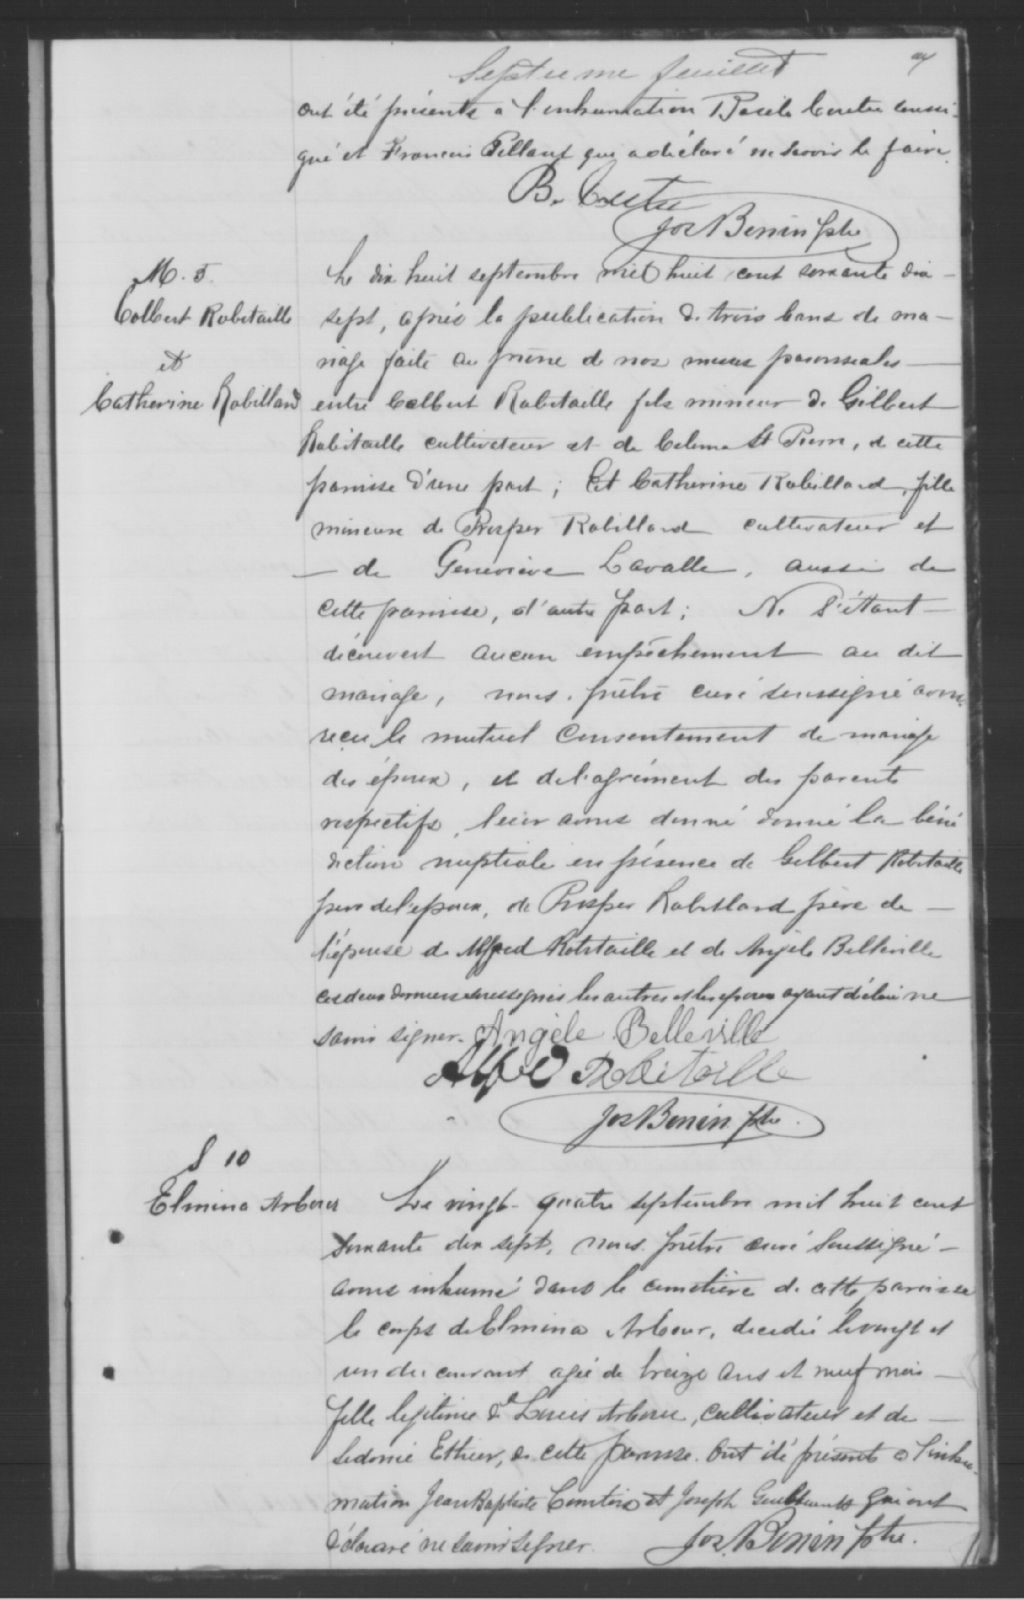 Septieme feuillet
ont été présents a l'inhumation Basile Coutu soussi-
gné et Francois Pellant qui a déclaré ne savoir le faire.
B. Coutu
Jos Bonin ptre
M. 5.
Colbert Robitaille
et
Catherine Robillard
Le dix huit septembre mil huit cent soixante dix-
sept, après la publication de trois bans de ma-
riage faite au prône de nos messes paroissiales
entre Colbert Robitaille fils mineur de Gilbert
Robitaille cultivateur et de Celima St Pierre, de cette
paroisse d'une part; Et Catherine Robillard, fille
mineure de Prosper Robillard cultivateur et
de Geneviève Lavallé, aussi de
cette paroisse, d'autre part; Ne s'étant
découvert aucun empêchement au dit
mariage, nous, prêtre curé soussigné avons
reçu le mutuel consentement de mariage
des époux, et de l'agrément des parents
respectifs, leur avons donné donné la béné
diction nuptiale en présence de Gilbert Robitaille
père de l'epoux, de Prosper Robillard père de
l'épouse de Alfred Robitaille et de Angèle Belleville
ces deux derniers soussignés les autres et les epoux ayant déclaré ne
savoir signer. Angèle Belleville
Alfred Robitaille
Jos Bonin ptre.
S 10
Elmina Arbour
Le vingt-quatre septembre mil huit cent
soixante dix sept, nous prêtre curé soussigné
avons inhumé dans le cimetière de cette paroisse
le corps de Elmina Arbour, decedée le vingt et
un du courant agée de treize ans et neuf mois
fille legitime de Louis Arbour, cultivateur et de
Sedonie Ethier, de cette paroisse. Ont été présents a l'inhu-
mation Jean Baptiste Comtois et Joseph qui ont
déclaré ne savoir signer. Jos. Bonin ptre.